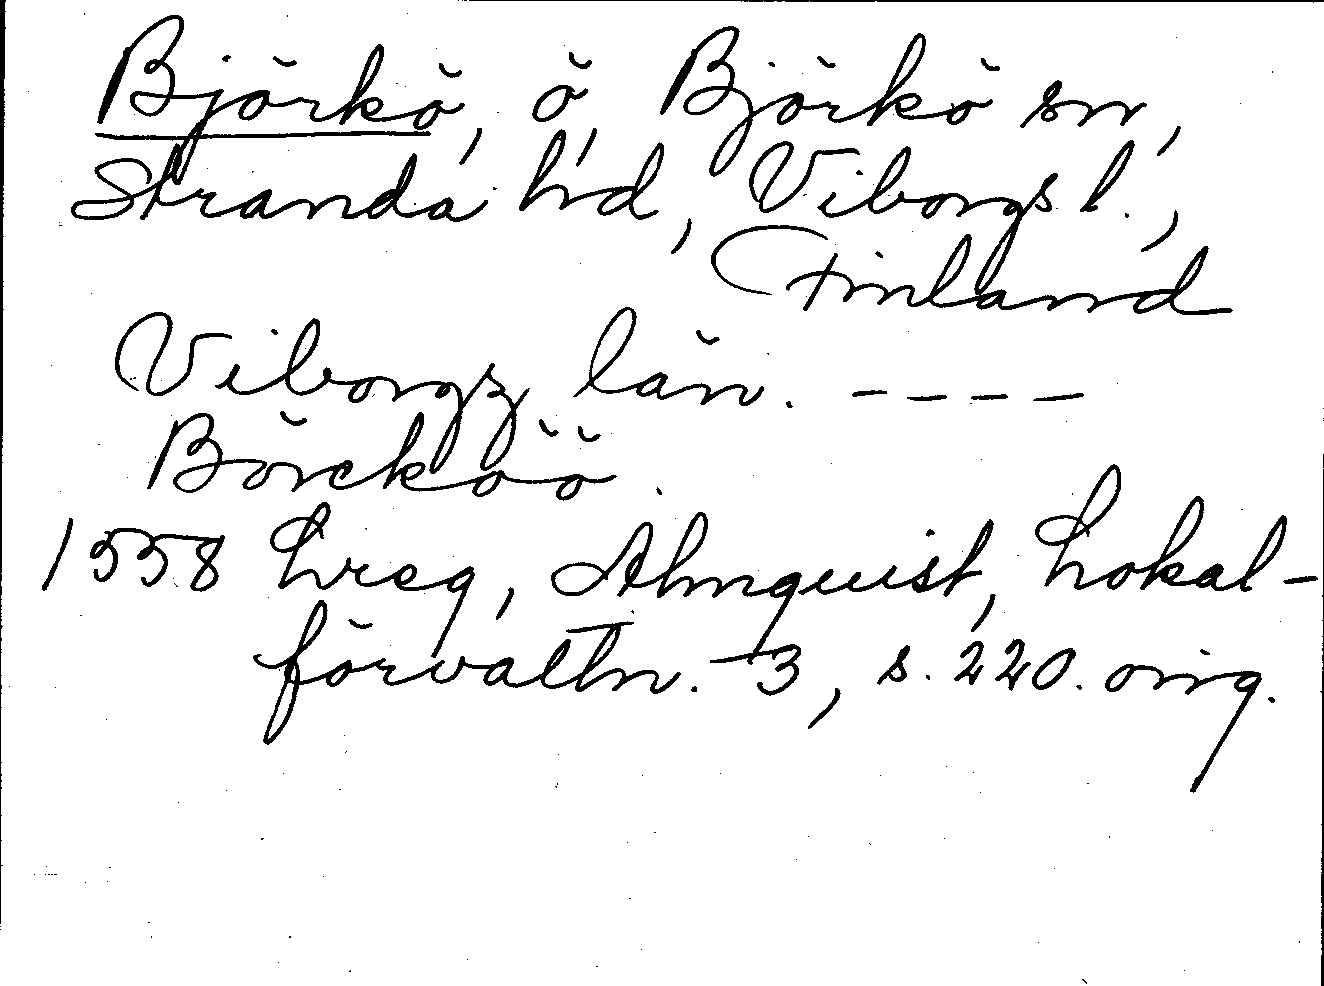 Björkö, ö, Björkö sn,
Stranda hd, Viborgs l.,
Finland
Viborgz län. ----
Börcköö.
1558 hreg, Almquist, Lokal-
förvaltn. 3, s. 220. orig.